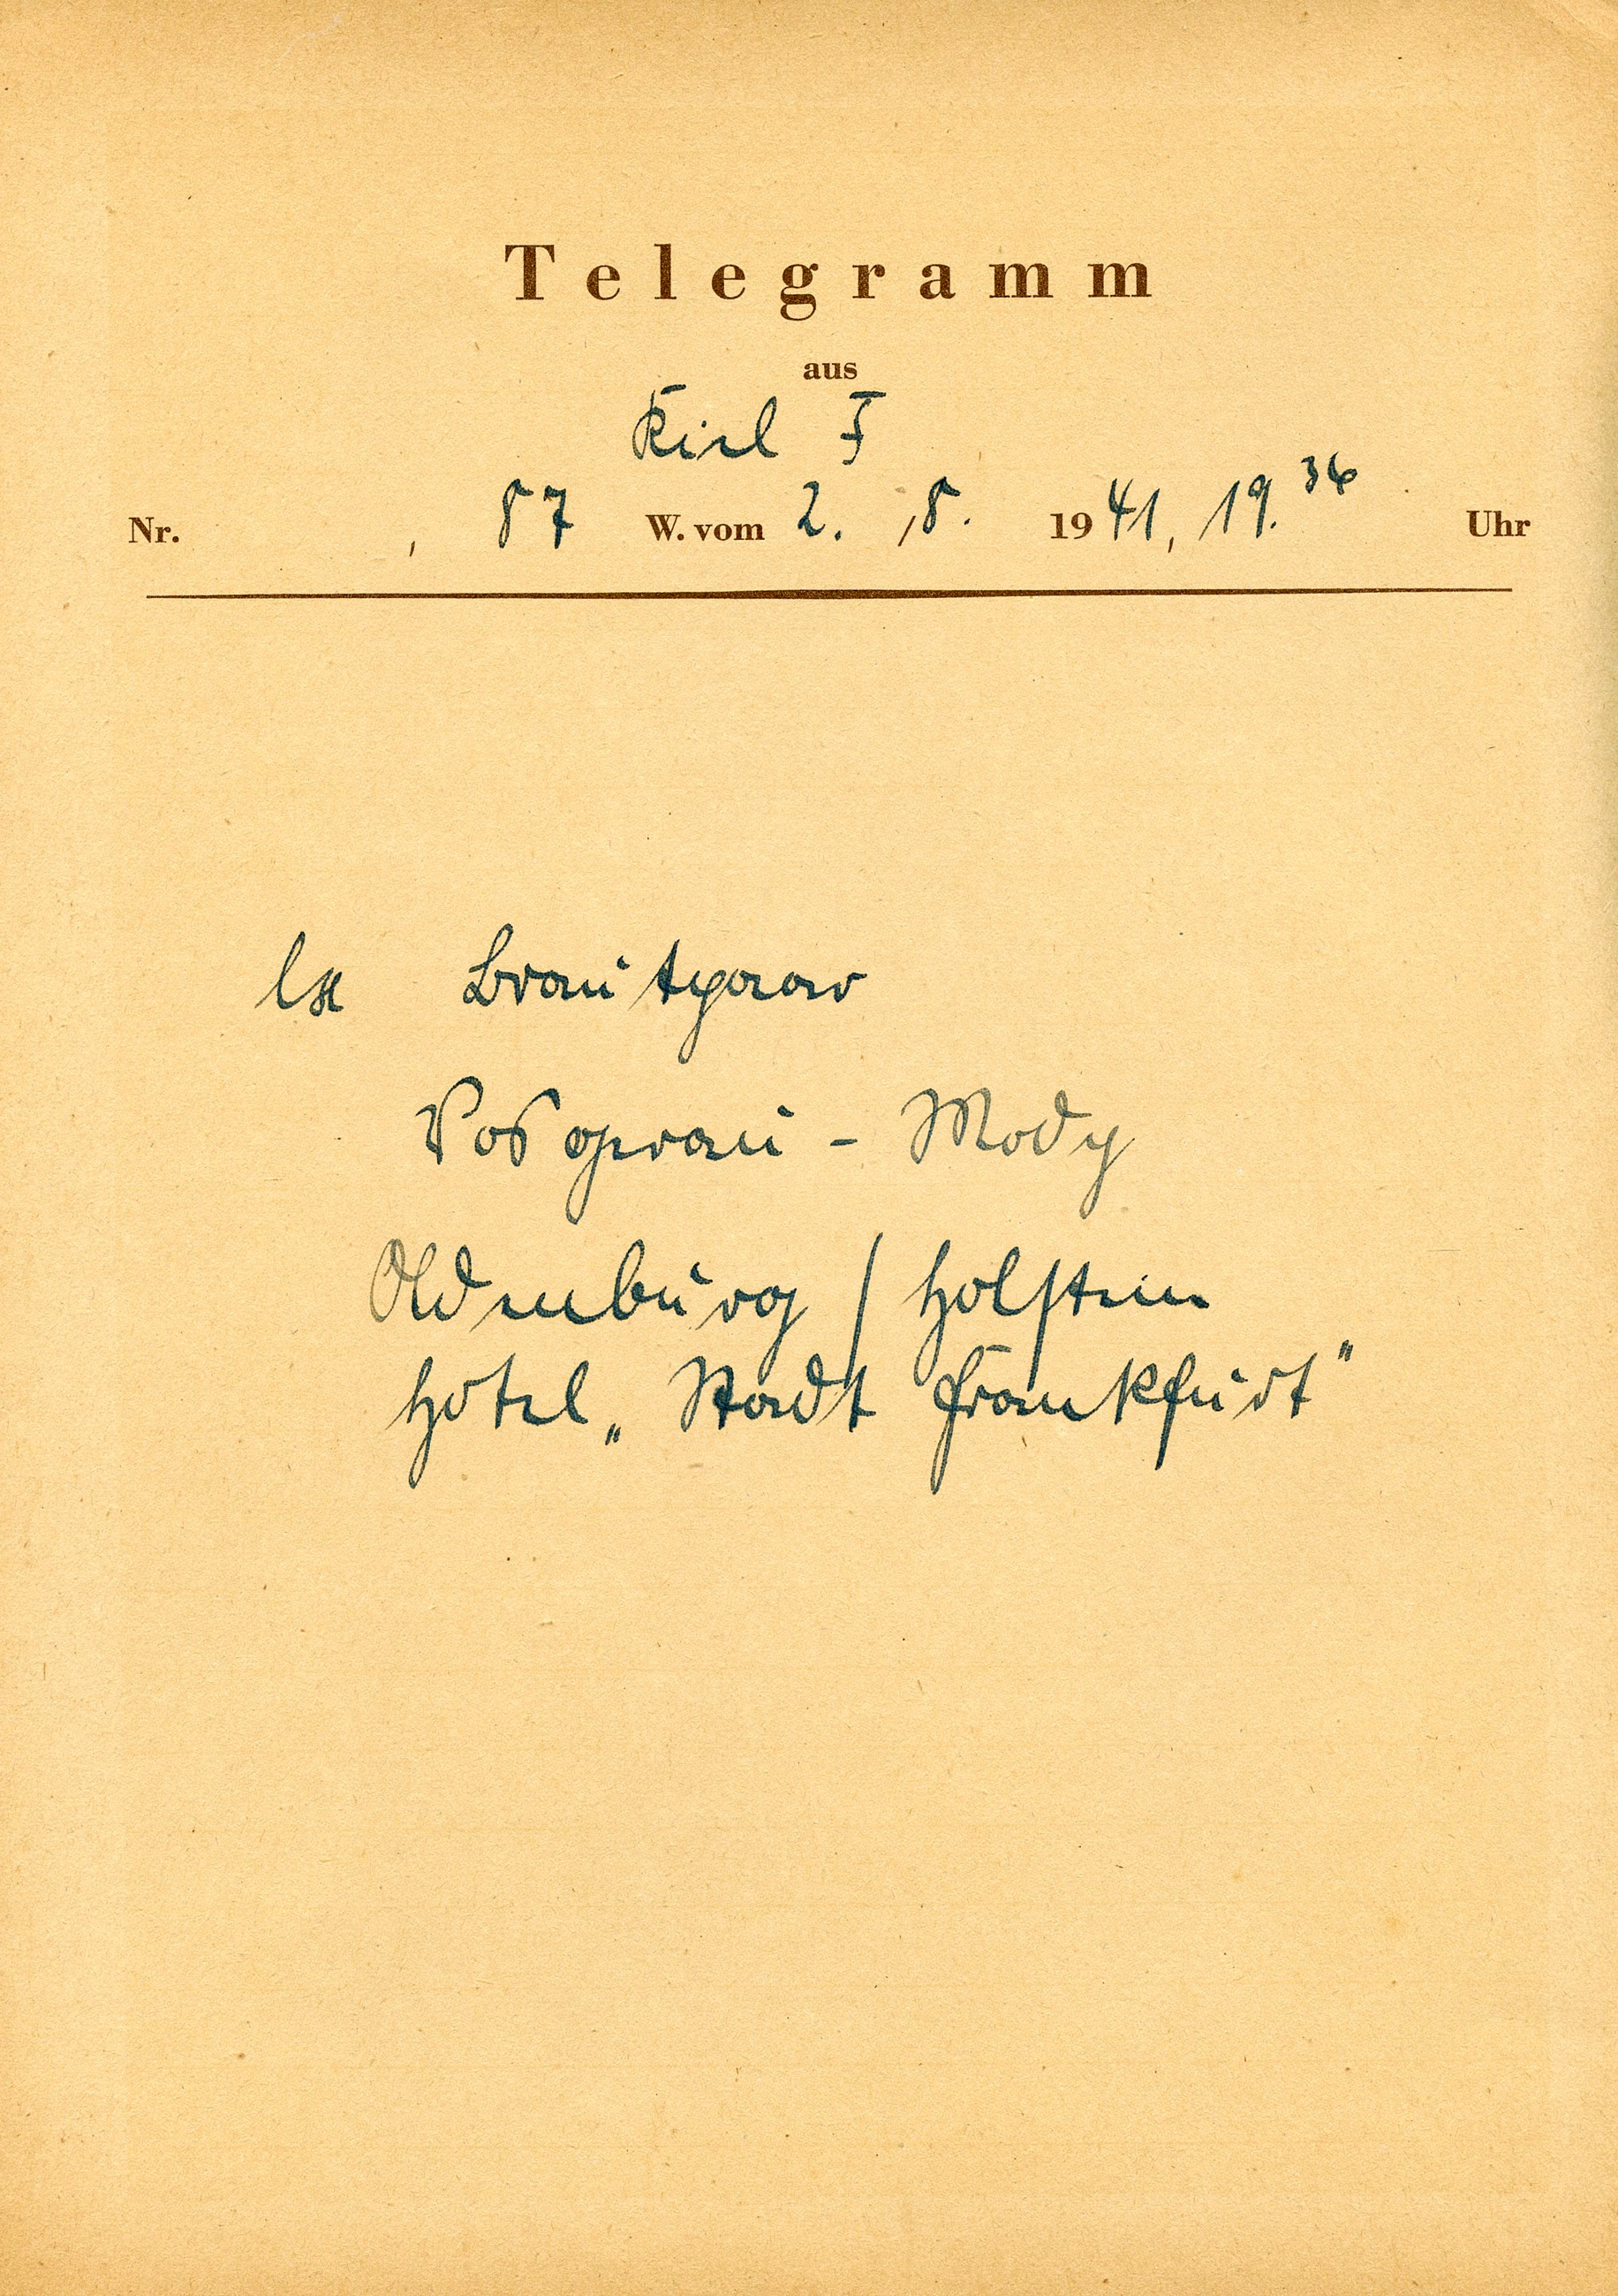 Telegramm
aus
Kiel F
Nr. , 87 W. vom 2. 8. 1941, 19.36 Uhr
lx Brautpaar
- Mody
Oldenburg / Holstein
Hotel „Stadt Frankfurt"